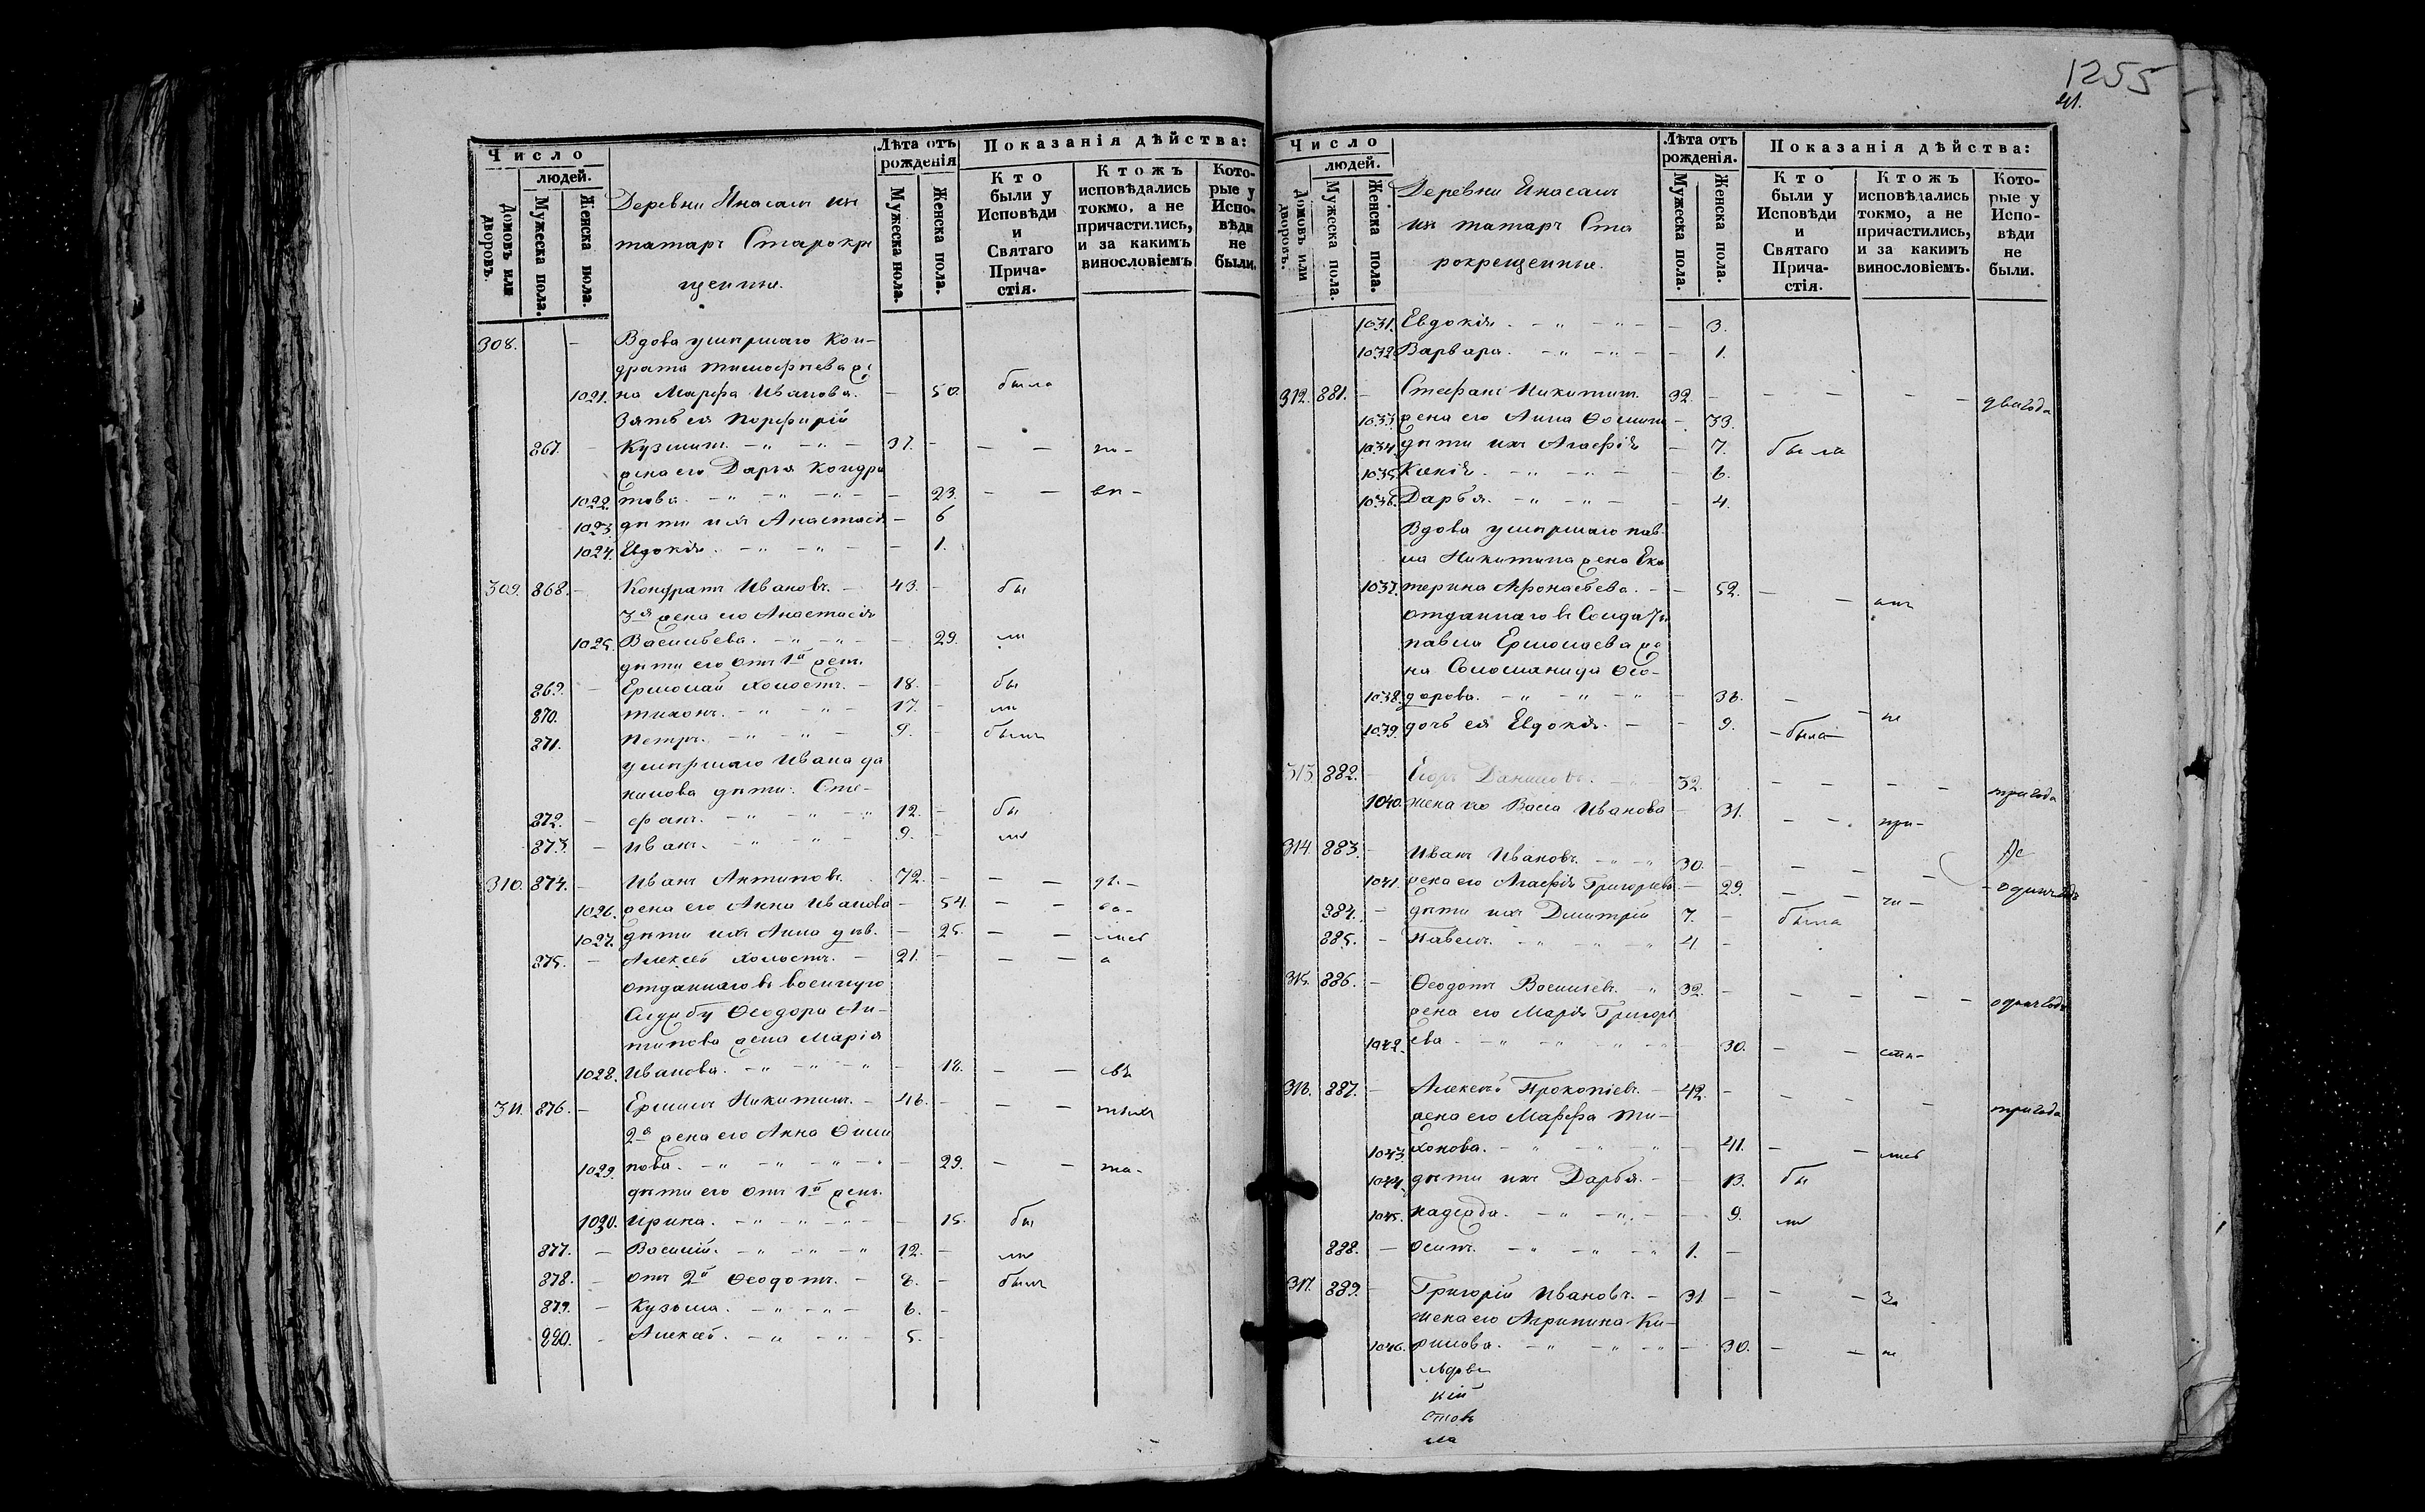 1255
41.
Число
людей.
Домовъ или дворовъ.
Мужеска пола.
Женска пола.
Деревни Янасалъ изъ
татаръ Старокре
щенные.
Лѣта отъ рожденія
Мужеска пола.
Женска пола.
Показанія дѣйства:
Кто были у Исповѣди и Святаго Прича-стія.
Ктожъ исповѣдались токмо, а не причастились, и за какимъ винословіемъ
Кото-рые у Испо-вѣди не были.
308. — Вдова умершаго Кон-
драта Тимофеева же
1021. на Марфа Иванова. — 50. была
Зять ея Порфирій
867. — Кузминъ. — „ — „ — 37. — — — по-
жена его Дарья Кондра
1022. това. — „ — „ — „ — — 23. — — вп-
1023. дѣти ихъ Анастасія — 6
1024. Евдокія. — „ — „ — — 1.
309. 868. — Кондратъ Ивановъ. — 43. — бы
3я жена его Анастасія
1025. Васильева. — „ — „ — — 29. ли
дѣти его отъ 1й жен.
869. — Ермолай холостъ. — 18. — бы
870. Тихонъ. — „ — „ — 17. — ли
871. Петръ. — „ — „ — 9. — былъ
умершаго Ивана Да
нилова дѣти: Сте-
872. — фанъ. — „ — „ — „ 12. — бы
873. — Иванъ. — „ — „ — 9. — ли
310. 874. — Иванъ Антиповъ. 72. — — —
1026. жена его Анна Иванова — 54. — — ва-
1027. дѣти ихъ Анна дѣв. — 25. — — лись
875. — Алексѣй холостъ. — 21. — — — а
отданнаго въ военную
Службу Ѳеодора Ан-
типова жена Марія
1028. Иванова. — „ — „ — „ — 18. — —
311. 876. — Ермилъ Никитинъ. — 46. — — —
2я жена его Анна Фили
1029. пова. — „ — „ — „ — „ — 29. — — та-
дѣти его отъ 1й жены.
1030. Ирина. — „ — „ — „ — — 15. бы
877. — Василій. — „ — „ — „ 12. — ли
878. — отъ 2й Ѳеодотъ. — 8. — былъ
879. — Кузьма. — „ — „ — 6. —
880. — Алексѣй. — „ — „ — 5. —
Число
людей.
Домовъ или дворовъ.
Мужеска пола.
Женска пола.
Деревни Янасалъ
изъ татаръ Ста
рокрещенные.
Лѣта отъ рожденія.
Мужеска пола.
Женска пола.
Показанія дѣйства:
Кто были у Исповѣди и Святаго Прича-стія.
Ктожъ исповѣдались токмо, а не причастились, и за какимъ винословіемъ.
Кото-рые у Испо-вѣди не были.
1031. Евдокія. — „ — „ — — 3.
1032. Варвара. — „ — „ — — 1.
312. 881. — Стефанъ Никитинъ. 32. — — — — — два года
1033. жена его Анна Фомина — 33.
1034. дѣти ихъ Агафія — 7. была
1035. Ксенія. — „ — „ — — 6.
1036. Дарья. — „ — „ — — 4.
Вдова умершаго Пав-
ла Никитина жена Ека
1037. терина Афонасьева. — — 52. — —
отданнаго въ Солдаты
Павла Ермолаева же
на Соломанида Ѳео-
1038. дорова. — „ — „ — „ — 36. — — не
1039. дочь ея Евдокія. — — 9. — была —
313. 882. — Егоръ Даниловъ. 32. — — — — три года
1040. жена его Васса Иванова — 31. — — при-
314. 883. — Иванъ Ивановъ. — „ — „ 30. — — — —
1041. жена его Агафія Григорьева — 29. — — чи — одинъ годъ
884. — дѣти ихъ Дмитрій 7. — была
885. — Павелъ. — „ — „ — „ 4. —
315. 886. — Ѳеодотъ Васильевъ. „ 32. — — — — — одинъ годъ
жена его Марія Григорь
1042. ева — „ — „ — „ — „ — 30. — — сти-
316. 887. — Алексѣй Прокопіевъ. — 42. — — — — три года
жена его Марфа Ти-
1043. хонова. — „ — „ — „ — 41. — — лись
1044. дѣти ихъ Дарья. — — 13. бы
1045. Надежда. — „ — „ — — 9. ли
888. — Осипъ. — „ — „ — „ 1. —
317. 889. — Григорій Ивановъ. — 31. — — — за
жена его Агрипина Ки-
1046. рилова. — „ — „ — „ — 30. — — не
кій
стов
ла